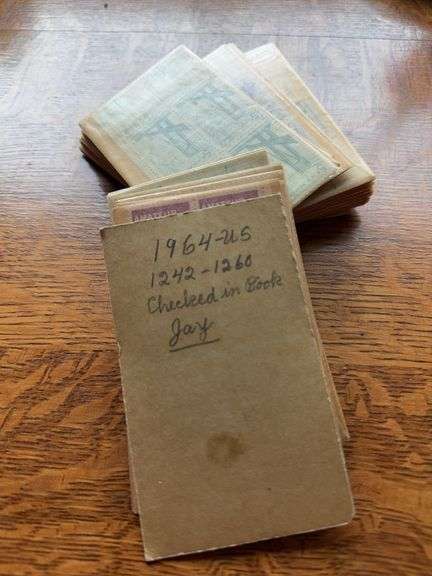 1964-US
1242-1260
Checked in Book
Jay